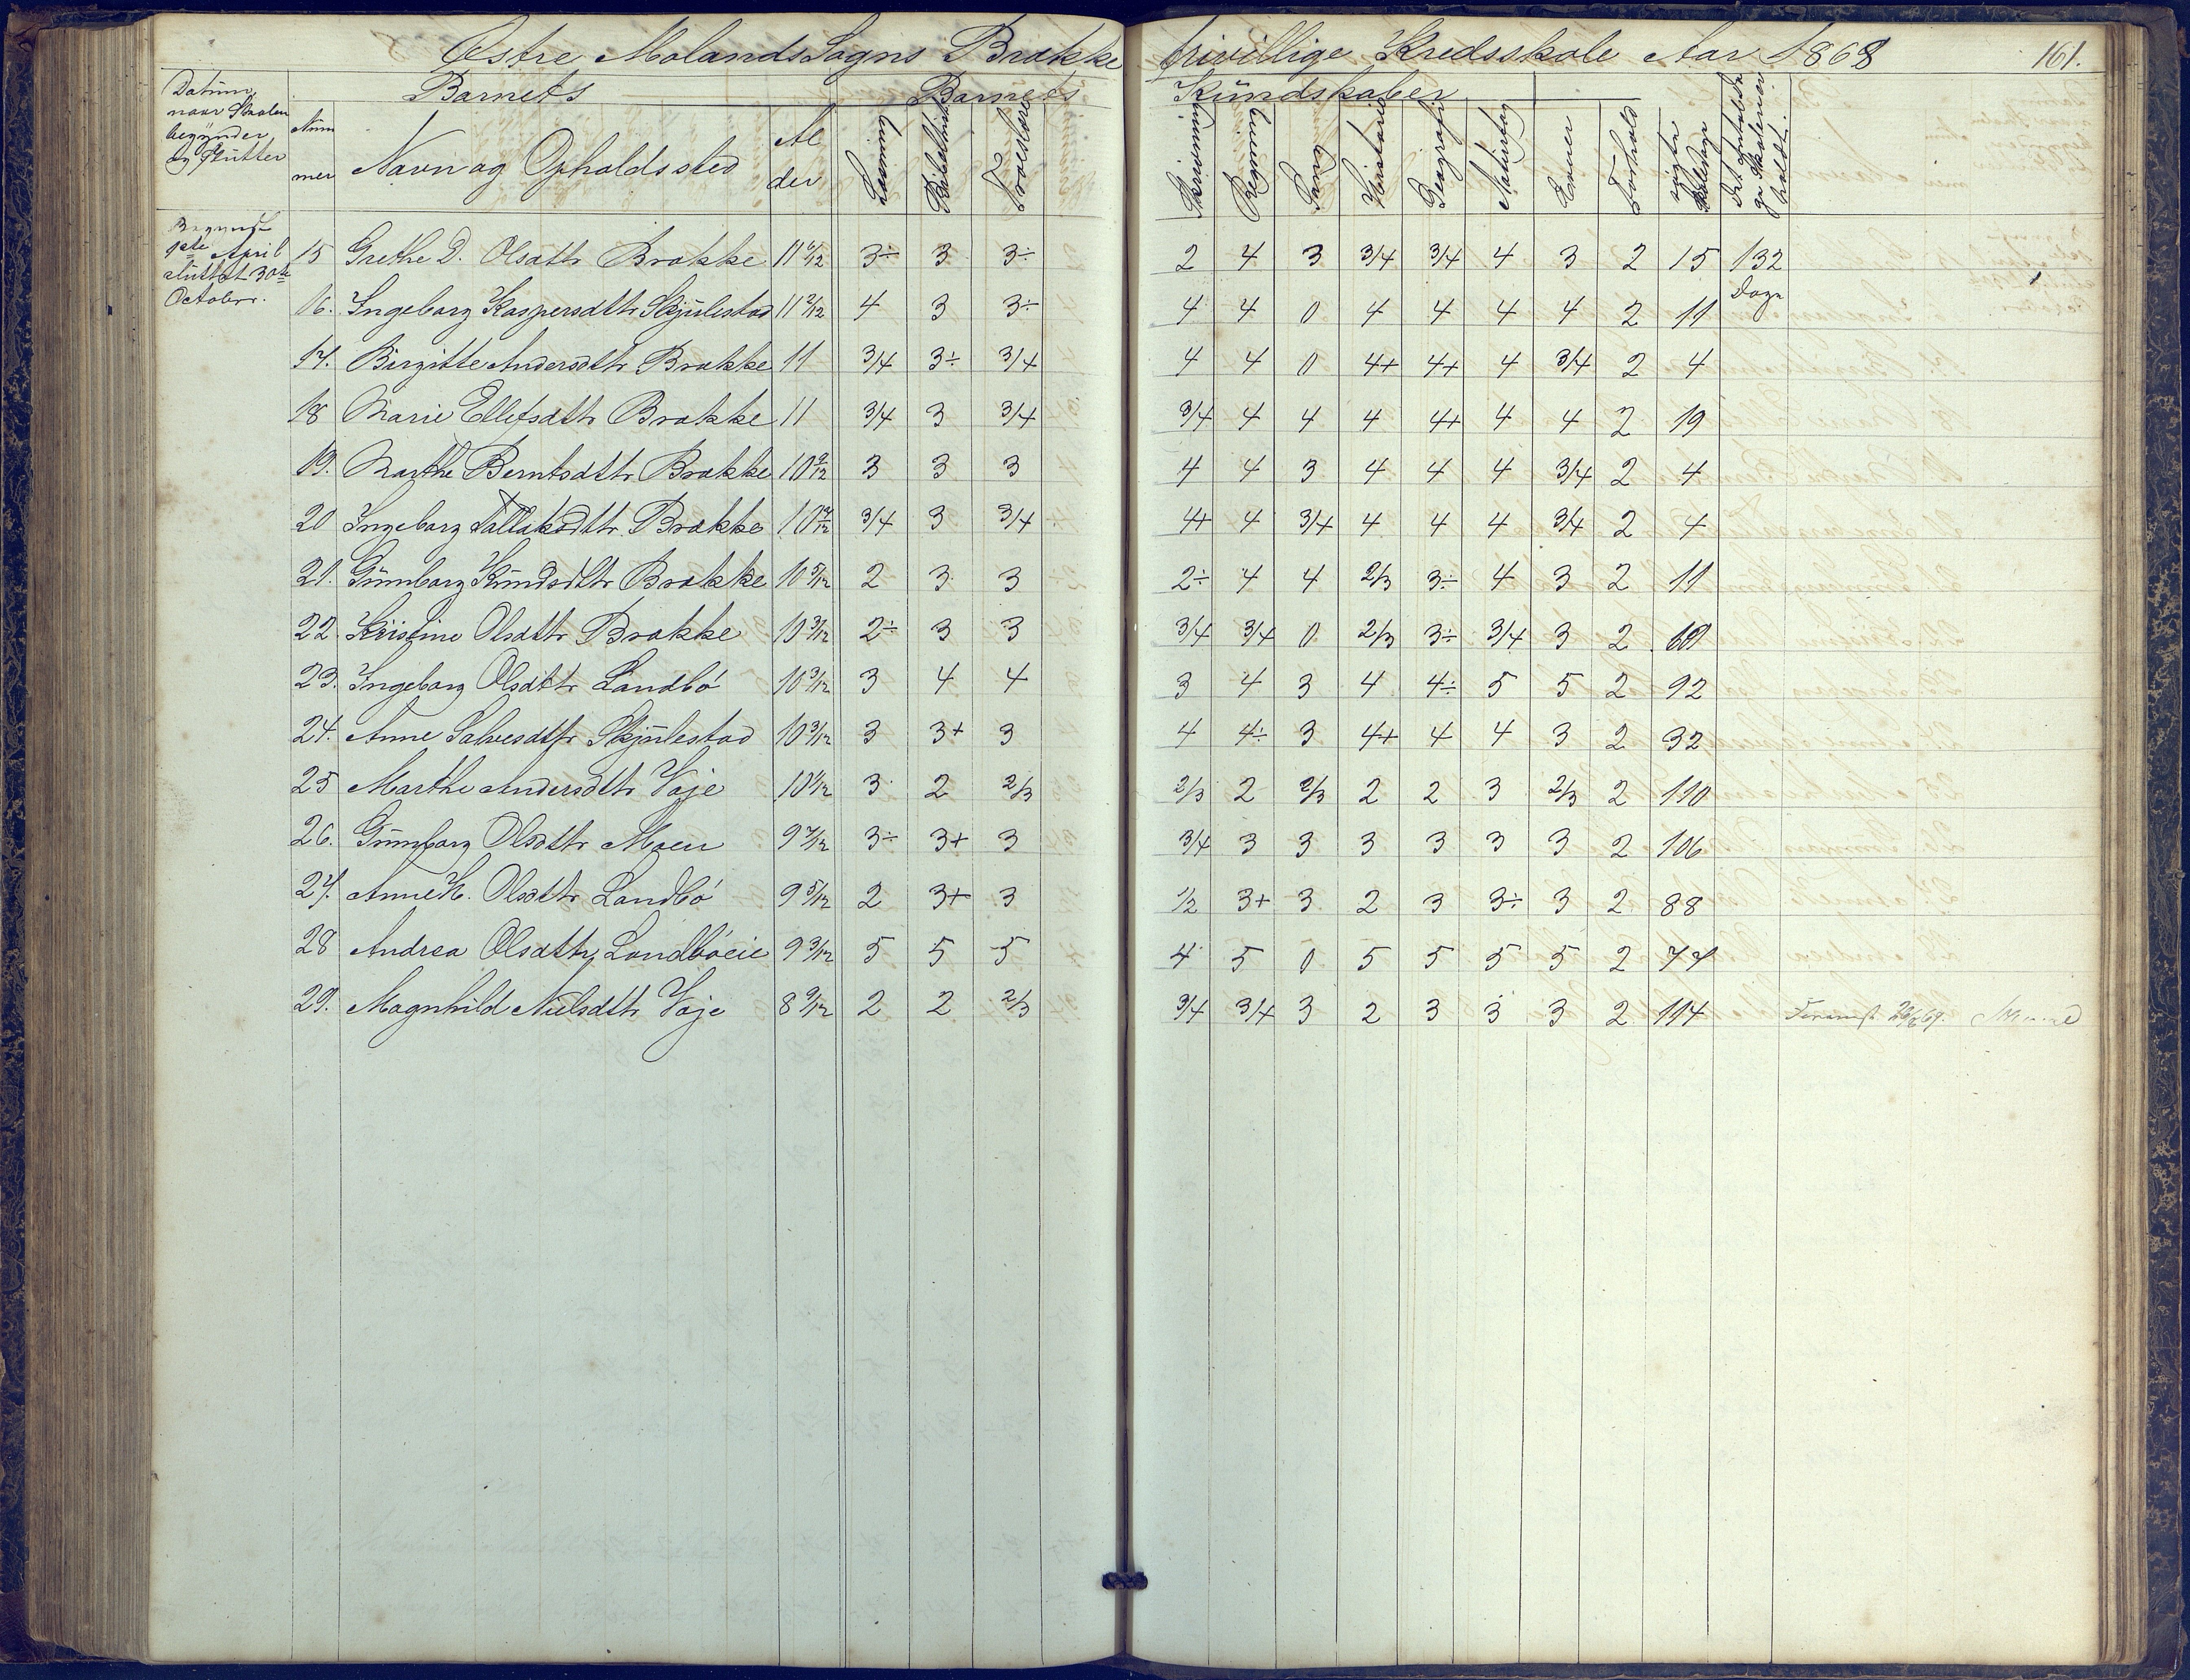 Østre Molands Sogns Brække frivillige Kredsskole Aar 1868 161.
Datum, naar Skolen begynder og Slutter
Barnets Barnets Kundskaber
Nummer Navn og Opholdssted Alder Læsning Bibelhistorie Troeslære Skrivning Regning Sang Historie Geografi Naturfag Evner Forhold søgte Skoledage Det Antal Dage Skolen er holdt.
Begyndt 9de April sluttet 30te October.
15 Grethe D. Olsdttr Brække 11 6/12 3÷ 3 3÷ 2 4 3 3/4 3/4 4 3 2 15 132 Dage
16. Ingeborg Kaspersdttr Skjulestad 11 2/12 4 3 3÷ 4 4 0 4 4 4 4 2 11
17. Birgitte Andersdttr Brække 11 3/4 3÷ 3/4 4 4 0 4+ 4+ 4 3/4 2 4
18 Marie Ellefsdttr Brække 11 3/4 3 3/4 3/4 4 4 4 4+ 4 4 2 19
19. Marthe Berntsdttr Brække 10 9/12 3 3 3 4 4 3 4 4 4 3/4 2 4
20 Ingeborg Tallaksdttr Brække 10 7/12 3/4 3 3/4 4+ 4 3/4 4 4 4 3/4 2 4
21. Gunnborg Knudsdttr Brække 10 5/12 2 3 3 2÷ 4 4 2/3 3÷ 4 3 2 11
22. Kristine Olsdttr Brække 10 3/12 2÷ 3 3 3/4 3/4 0 2/3 3÷ 3/4 3 2
23. Ingeborg Olsdttr Landbö 10 3/12 3 4 4 3 4 3 4 4÷ 5 5 2 92
24. Anne Salvesdttr Skjulestad 10 3/12 3 3+ 3 4 4÷ 3 4+ 4 4 3 2 32
25 Marthe Andersdttr Voje 10 1/12 3 2 2/3 2/3 2 2/3 2 2 3 2/3 2 110
26. Gunnborg Olsdttr Moen 9 7/12 3÷ 3+ 3 3/4 3 3 3 3 3 3 2 106
27. Anne K. Olsdttr Landbö 9 5/12 2 3+ 3 1/2 3+ 3 2 3 3÷ 3 2 88
28 Andrea Olsdttr Landböeie 9 3/12 5 5 5 4 5 0 5 5 5 5 2 77
29. Magnhild Nielsdttr Voje 8 9/12 2 2 2/3 3/4 3/4 3 2 3 3 3 2 114